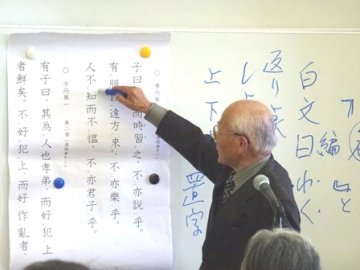 子曰 而時習之、不亦説乎。
有朋自遠方來、不亦樂乎。
人不知而不慍、不亦君子乎。
○ 学而第一 第二章
有子曰、其為人也孝弟、而好犯上
者鮮矣。不好犯上、而好作亂者、
白文曰わく
返り点
上下 置字